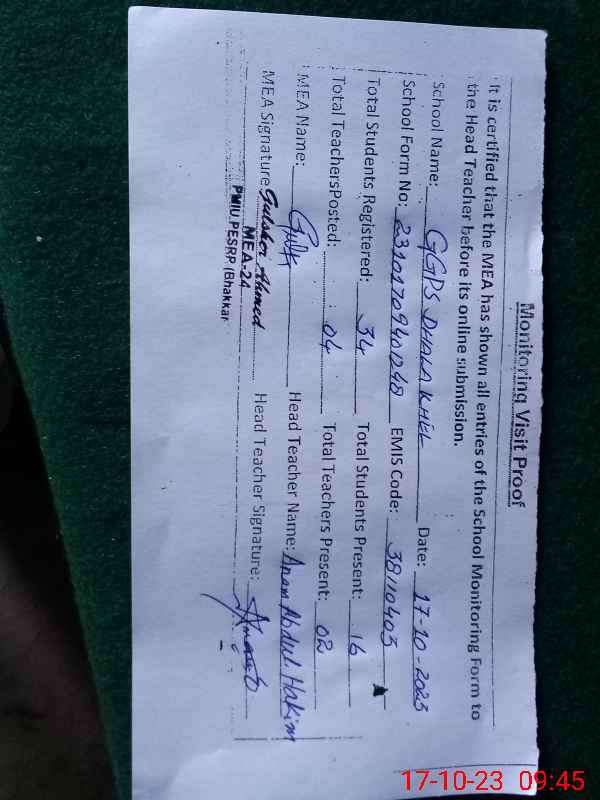 Monitoring Visit Proof
It is certified that the MEA has shown all entries of the School Monitoring Form to
the Head Teacher before its online submission.
School Name: GGPS DHALA KHEL Date: 17-10-2023
School Form No: 23101709401248 EMIS Code: 38110403
Total Students Registered: 34 Total Students Present: 16
Total TeachersPosted: 04 Total Teachers Present: 02
MEA Name: Head Teacher Name: Anam Abdul Hakim
MEA Signature: Gulsher Ahmed Head Teacher Signature:
MEA-24
PMIU, PESRP (Bhakkar
17-10-23 09:45